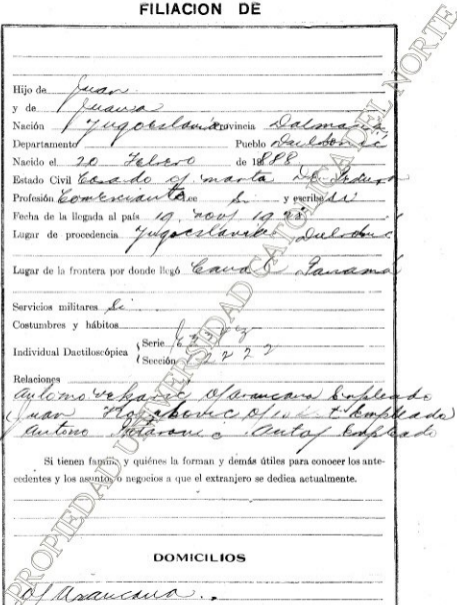 FILIACION DE
Hijo de Juan
y de Juana
Nación Yugoeslavia Provincia Dalmacia
Departamento Pueblo
Nacido el 20 Febrero de 1888
Estado Civil Casado c/ marta De
Profesión Comerciante Lee Si y escribe si
Fecha de la llegada al país 19. nov/ 19
Lugar de procedencia Yugoeslavia
Lugar de la frontera por donde llegó Canal Panamá
Servicios militares Si
Costumbres y hábitos
Individual Dactiloscópica Serie
Sección 2222
Relaciones
Antonio of/ araucana Empleado
Juan Empleado
Antonio Antof Empleado
Si tienen familia y quiénes la forman y demás útiles para conocer los ante-
cedentes y los asuntos o negocios a que el extranjero se dedica actualmente.
DOMICILIOS
of/ Araucana
PROPIEDAD UNIVERSIDAD CATOLICA DEL NORTE